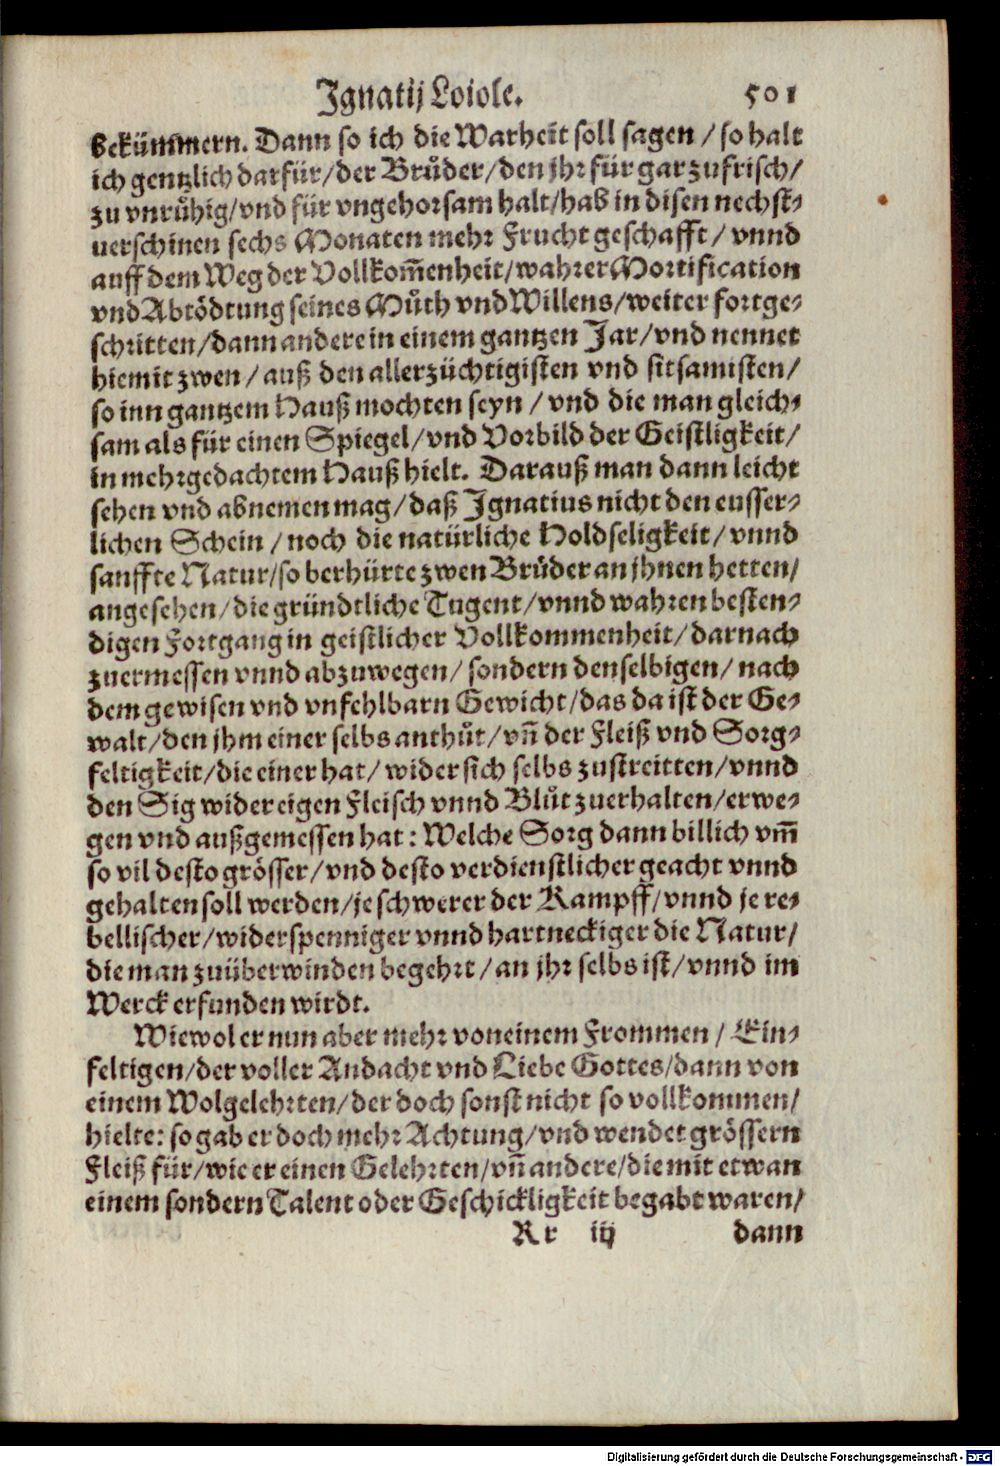 Ignatij Loiole. 501
bekümmern. Dann so ich die Warheit soll sagen / so halt
ich gentzlich darfür / der Brůder / den jhr für gar zu frisch /
zu vnrůhig / vnd für vngehorsam halt / hab in disen nechst⸗
uerschinen sechs Monaten mehr Frucht geschafft / vnnd
auff dem Weg der Vollkom̃enheit / wahrer Mortification
vnd Abtödtung seines Můth vnd Willens / weiter fortge⸗
schritten / dann andere in einem gantzen Jar / vnd nennet
hiemit zwen / auß den allerzüchtigisten vnd sitsamisten /
so inn gantzem Hauß mochten seyn / vnd die man gleich⸗
sam als für einen Spiegel / vnd Vorbild der Geistligkeit /
in mehrgedachtem Hauß hielt. Darauß man dann leicht
sehen vnd abnemen mag / daß Ignatius nicht den eusser⸗
lichen Schein / noch die natürliche Holdseligkeit / vnnd
sanffte Natur / so berhürte zwen Brůder an jhnen hetten /
angesehen / die gründtliche Tugent / vnnd wahren besten⸗
digen Fortgang in geistlicher Vollkommenheit / darnach
zuermessen vnnd abzuwegen / sondern denselbigen / nach
dem gewisen vnd vnfehlbarn Gewicht / das da ist der Ge⸗
walt / den jhm einer selbs anthůt / vñ der Fleiß vnd Sorg⸗
feltigkeit / die einer hat / wider sich selbs zustreitten / vnnd
den Sig wider eigen Fleisch vnnd Blůt zuerhalten / erwe⸗
gen vnd außgemessen hat: Welche Sorg dann billich vm̃
so vil desto grösser / vnd desto verdienstlicher geacht vnnd
gehalten soll werden / je schwerer der Kampff / vnnd je re⸗
bellischer / widerspenniger vnnd hartneckiger die Natur /
die man zuüberwinden begehrt / an jhr selbs ist / vnnd im
Werck erfunden wirdt.
Wiewol er nun aber mehr von einem Frommen / Ein⸗
feltigen / der voller Andacht vnd Liebe Gottes / dann von
einem Wolgelehrten / der doch sonst nicht so vollkommen /
hielte: so gab er doch mehr Achtung / vnd wendet grössern
Fleiß für / wie er einen Gelehrten / vñ andere / die mit etwan
einem sondern Talent oder Geschickligkeit begabt waren /
Rr iij dann
Digitalisierung gefördert durch die Deutsche Forschungsgemeinschaft - DFG